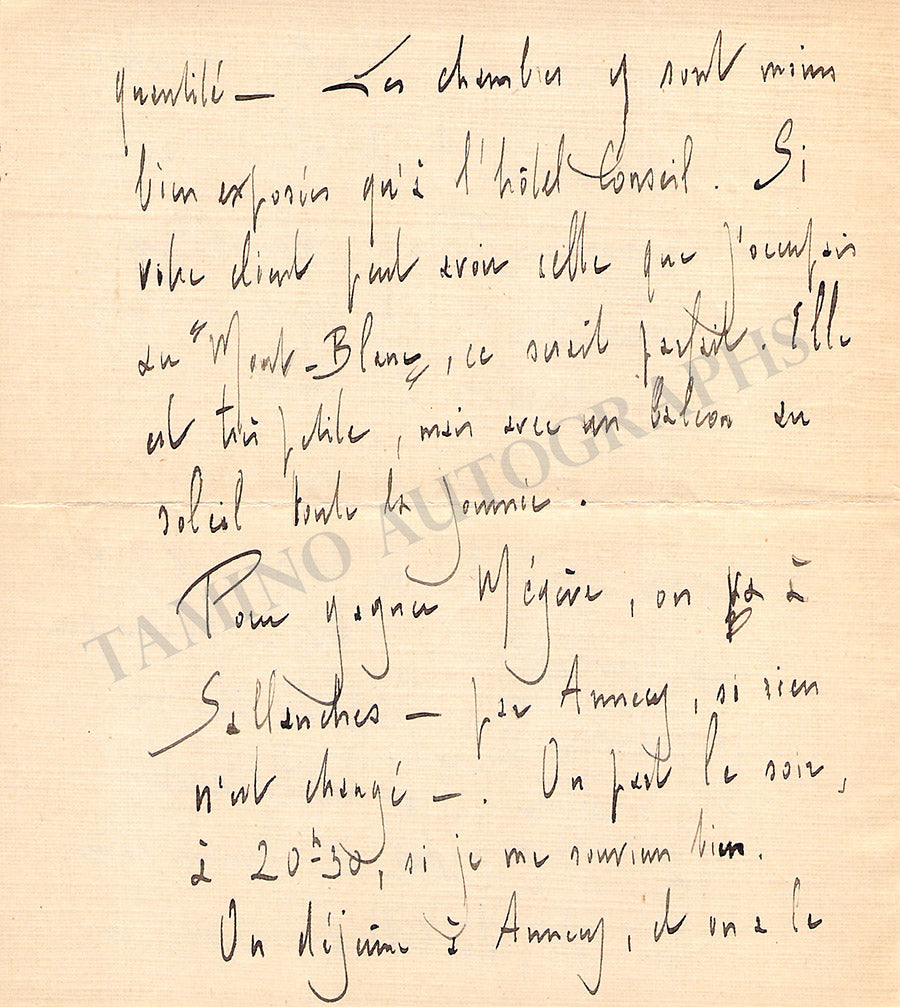 quantité — Les chambres y sont moins
bien exposées qu'à l'hôtel Conseil. Si
votre client peut avoir celle que j'occupais
au "Mont-Blanc", ce serait parfait. Elle
est très petite, mais avec un balcon au
soleil toute la journée.
Pour gagner Mégève, on va à
Sallanches — par Annecy, si rien
n'est changé —. On part le soir,
à 20h30, si je me souviens bien.
On déjeune à Annecy, et on a le
TAMINO AUTOGRAPHS